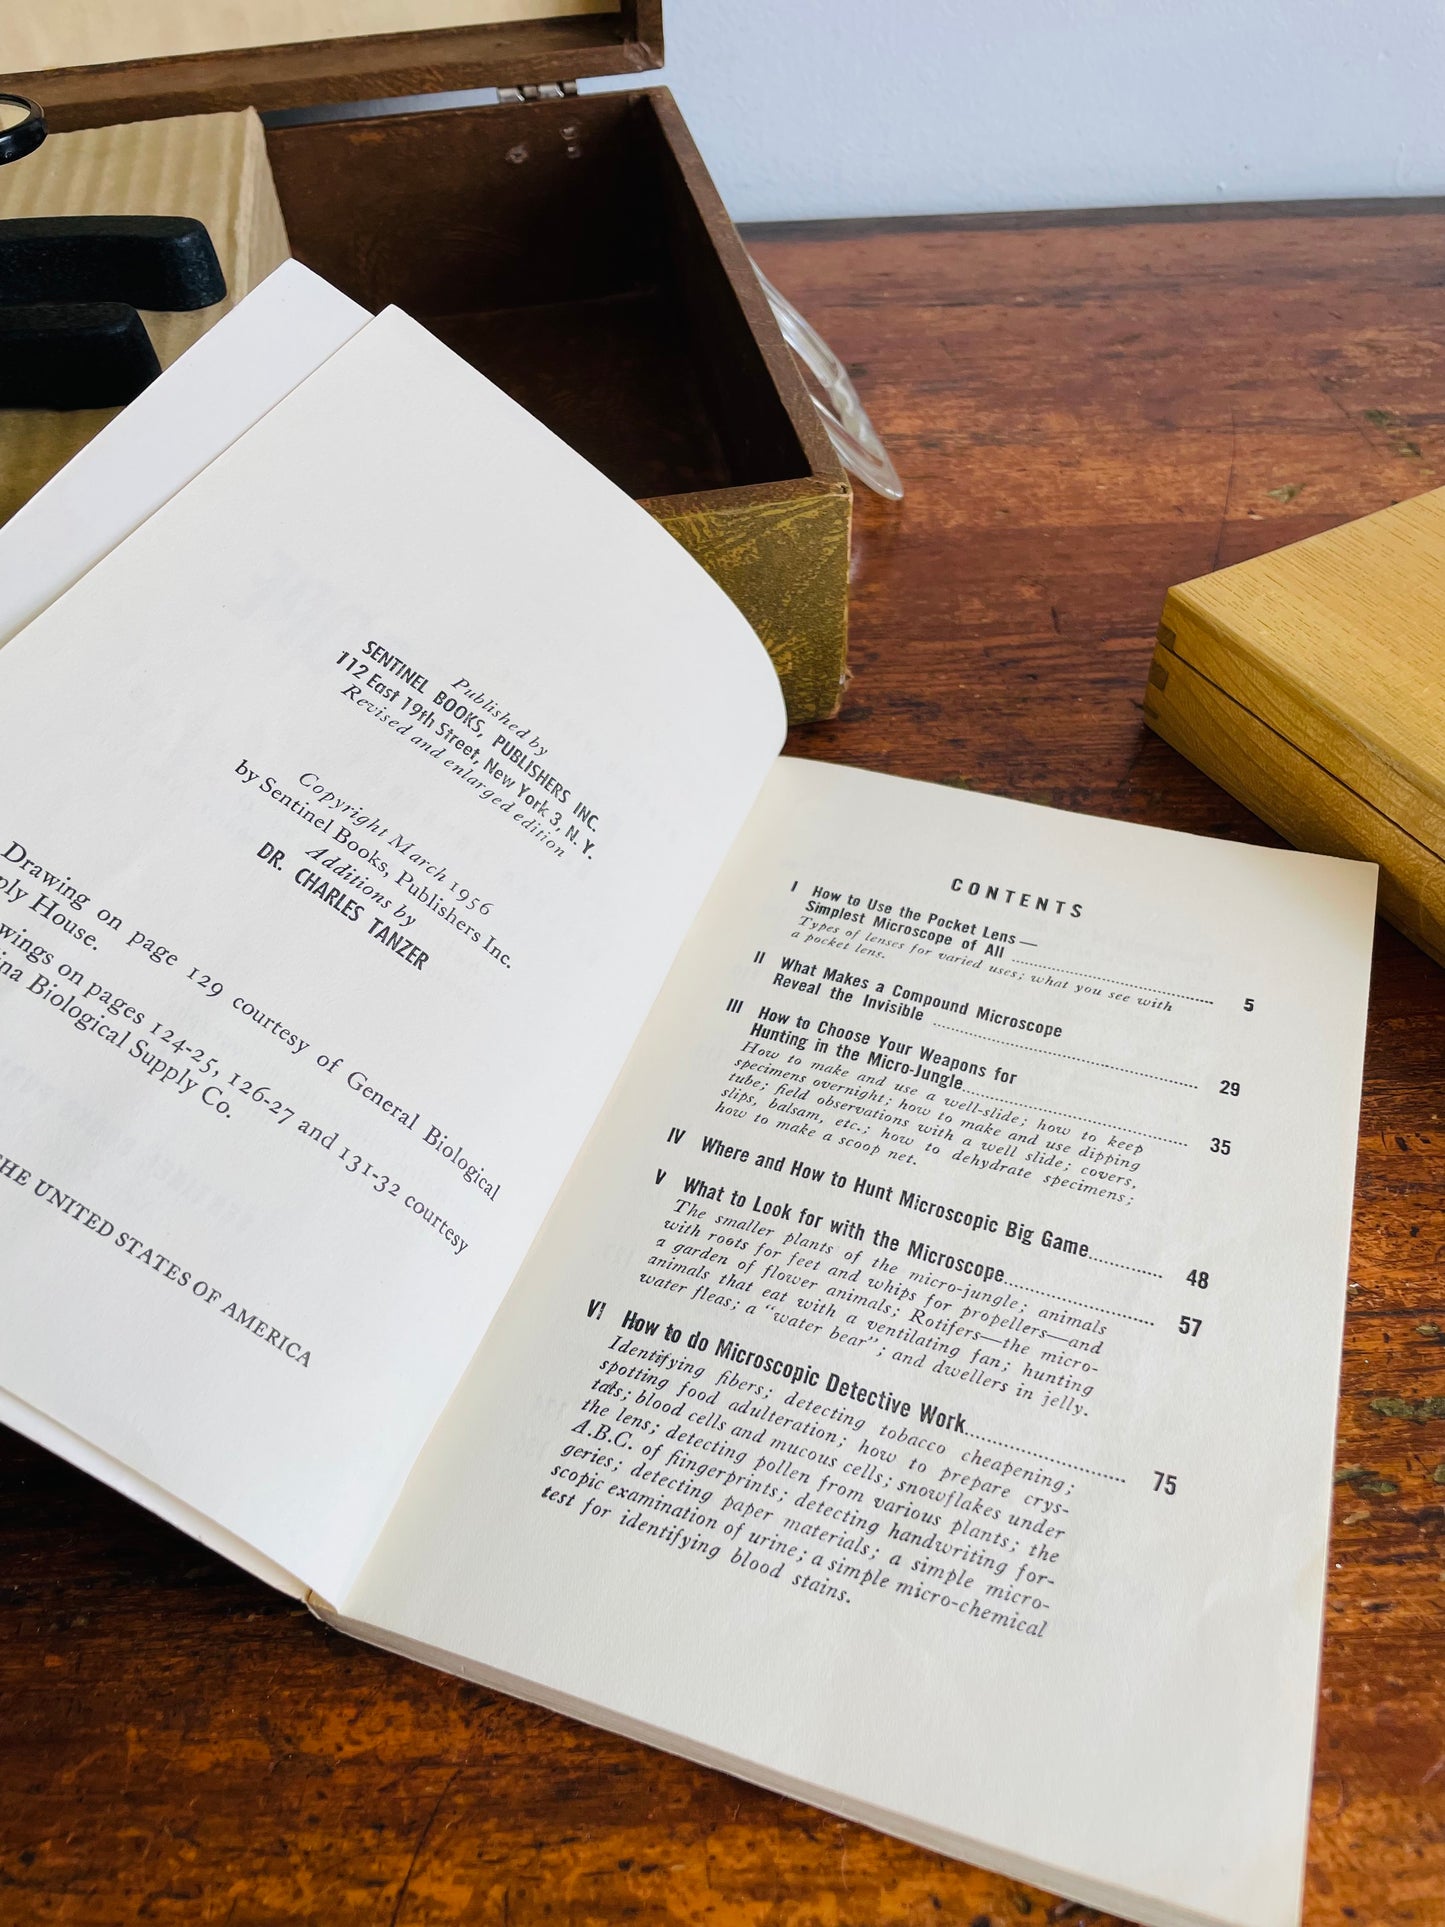 Published by
SENTINEL BOOKS, PUBLISHERS INC.
112 East 19th Street, New York 3, N. Y.
Revised and enlarged edition
Copyright March 1956
by Sentinel Books, Publishers Inc.
Additions by
DR. CHARLES TANZER
Drawing on page 129 courtesy of General Biological
ply House.
wings on pages 124-25, 126-27 and 131-32 courtesy
ina Biological Supply Co.
THE UNITED STATES OF AMERICA
CONTENTS
I How to Use the Pocket Lens—
Simplest Microscope of All 5
Types of lenses for varied uses; what you see with
a pocket lens.
II What Makes a Compound Microscope
Reveal the Invisible 29
III How to Choose Your Weapons for
Hunting in the Micro-Jungle 35
How to make and use a well-slide; how to keep
specimens overnight; how to make and use dipping
tube; field observations with a well slide; covers,
slips, balsam, etc.; how to dehydrate specimens;
how to make a scoop net.
IV Where and How to Hunt Microscopic Big Game 48
V What to Look for with the Microscope 57
The smaller plants of the micro-jungle; animals
with roots for feet and whips for propellers—and
a garden of flower animals; Rotifers—the micro-
animals that eat with a ventilating fan; hunting
water fleas; a "water bear"; and dwellers in jelly.
VI How to do Microscopic Detective Work 75
Identifying fibers; detecting tobacco cheapening;
spotting food adulteration; how to prepare crys-
tals; blood cells and mucous cells; snowflakes under
the lens; detecting pollen from various plants; the
A.B.C. of fiingerprints; detecting handwriting for-
geries; detecting paper materials; a simple micro-
scopic examination of urine; a simple micro-chemical
test for identifying blood stains.